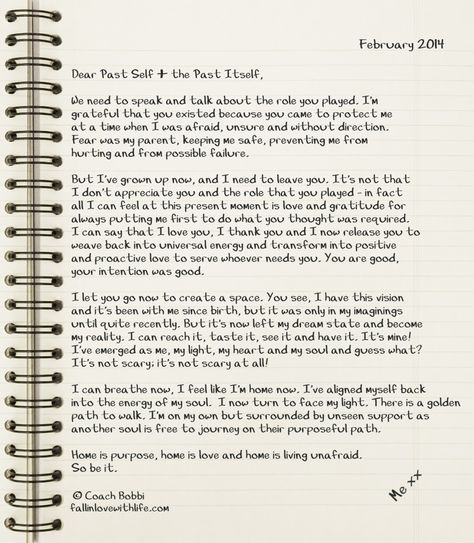 February 2014
Dear Past Self + the Past Itself,
We need to speak and talk about the role you played. I'm
grateful that you existed because you came to protect me
at a time when I was afraid, unsure and without direction.
Fear was my parent, keeping me safe, preventing me from
hurting and from possible failure.
But I've grown up now, and I need to leave you. It's not that
I don't appreciate you and the role that you played - in fact
all I can feel at this present moment is love and gratitude for
always putting me first to do what you thought was required.
I can say that I love you, I thank you and I now release you to
weave back into universal energy and transform into positive
and proactive love to serve whoever needs you. You are good,
your intention was good.
I let you go now to create a space. You see, I have this vision
and it's been with me since birth, but it was only in my imaginings
until quite recently. But it's now left my dream state and become
my reality. I can reach it, taste it, see it and have it. It's mine!
I've emerged as me, my light, my heart and my soul and guess what?
It's not scary; it's not scary at all!
I can breathe now, I feel like I'm home now. I've aligned myself back
into the energy of my soul. I now turn to face my light. There is a golden
path to walk. I'm on my own but surrounded by unseen support as
another soul is free to journey on their purposeful path.
Home is purpose, home is love and home is living unafraid.
So be it.
Me xx
© Coach Bobbi
fallinlovewithlife.com